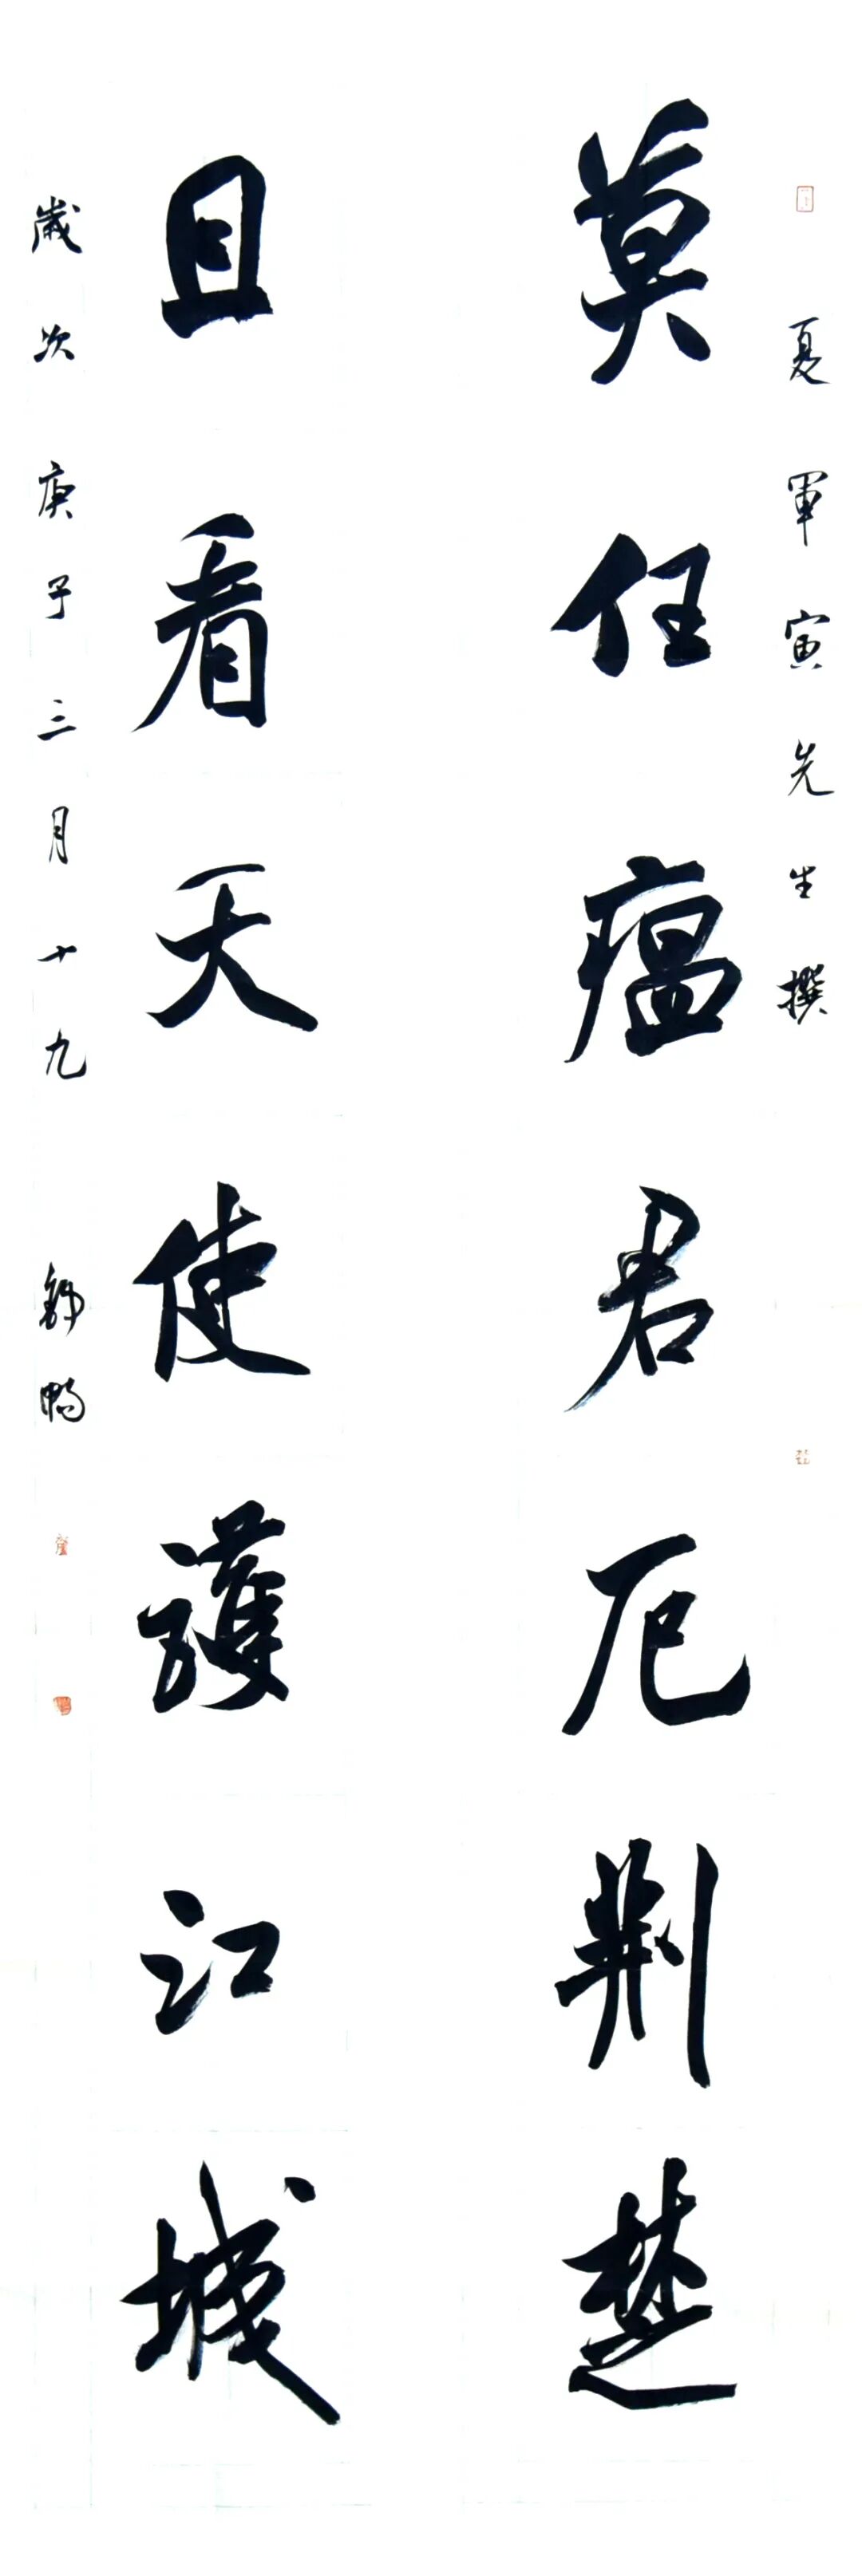 夏軍寅先生撰
莫任瘟君厄荆楚
且看天使護江城
歲次庚子三月十九
舒暢